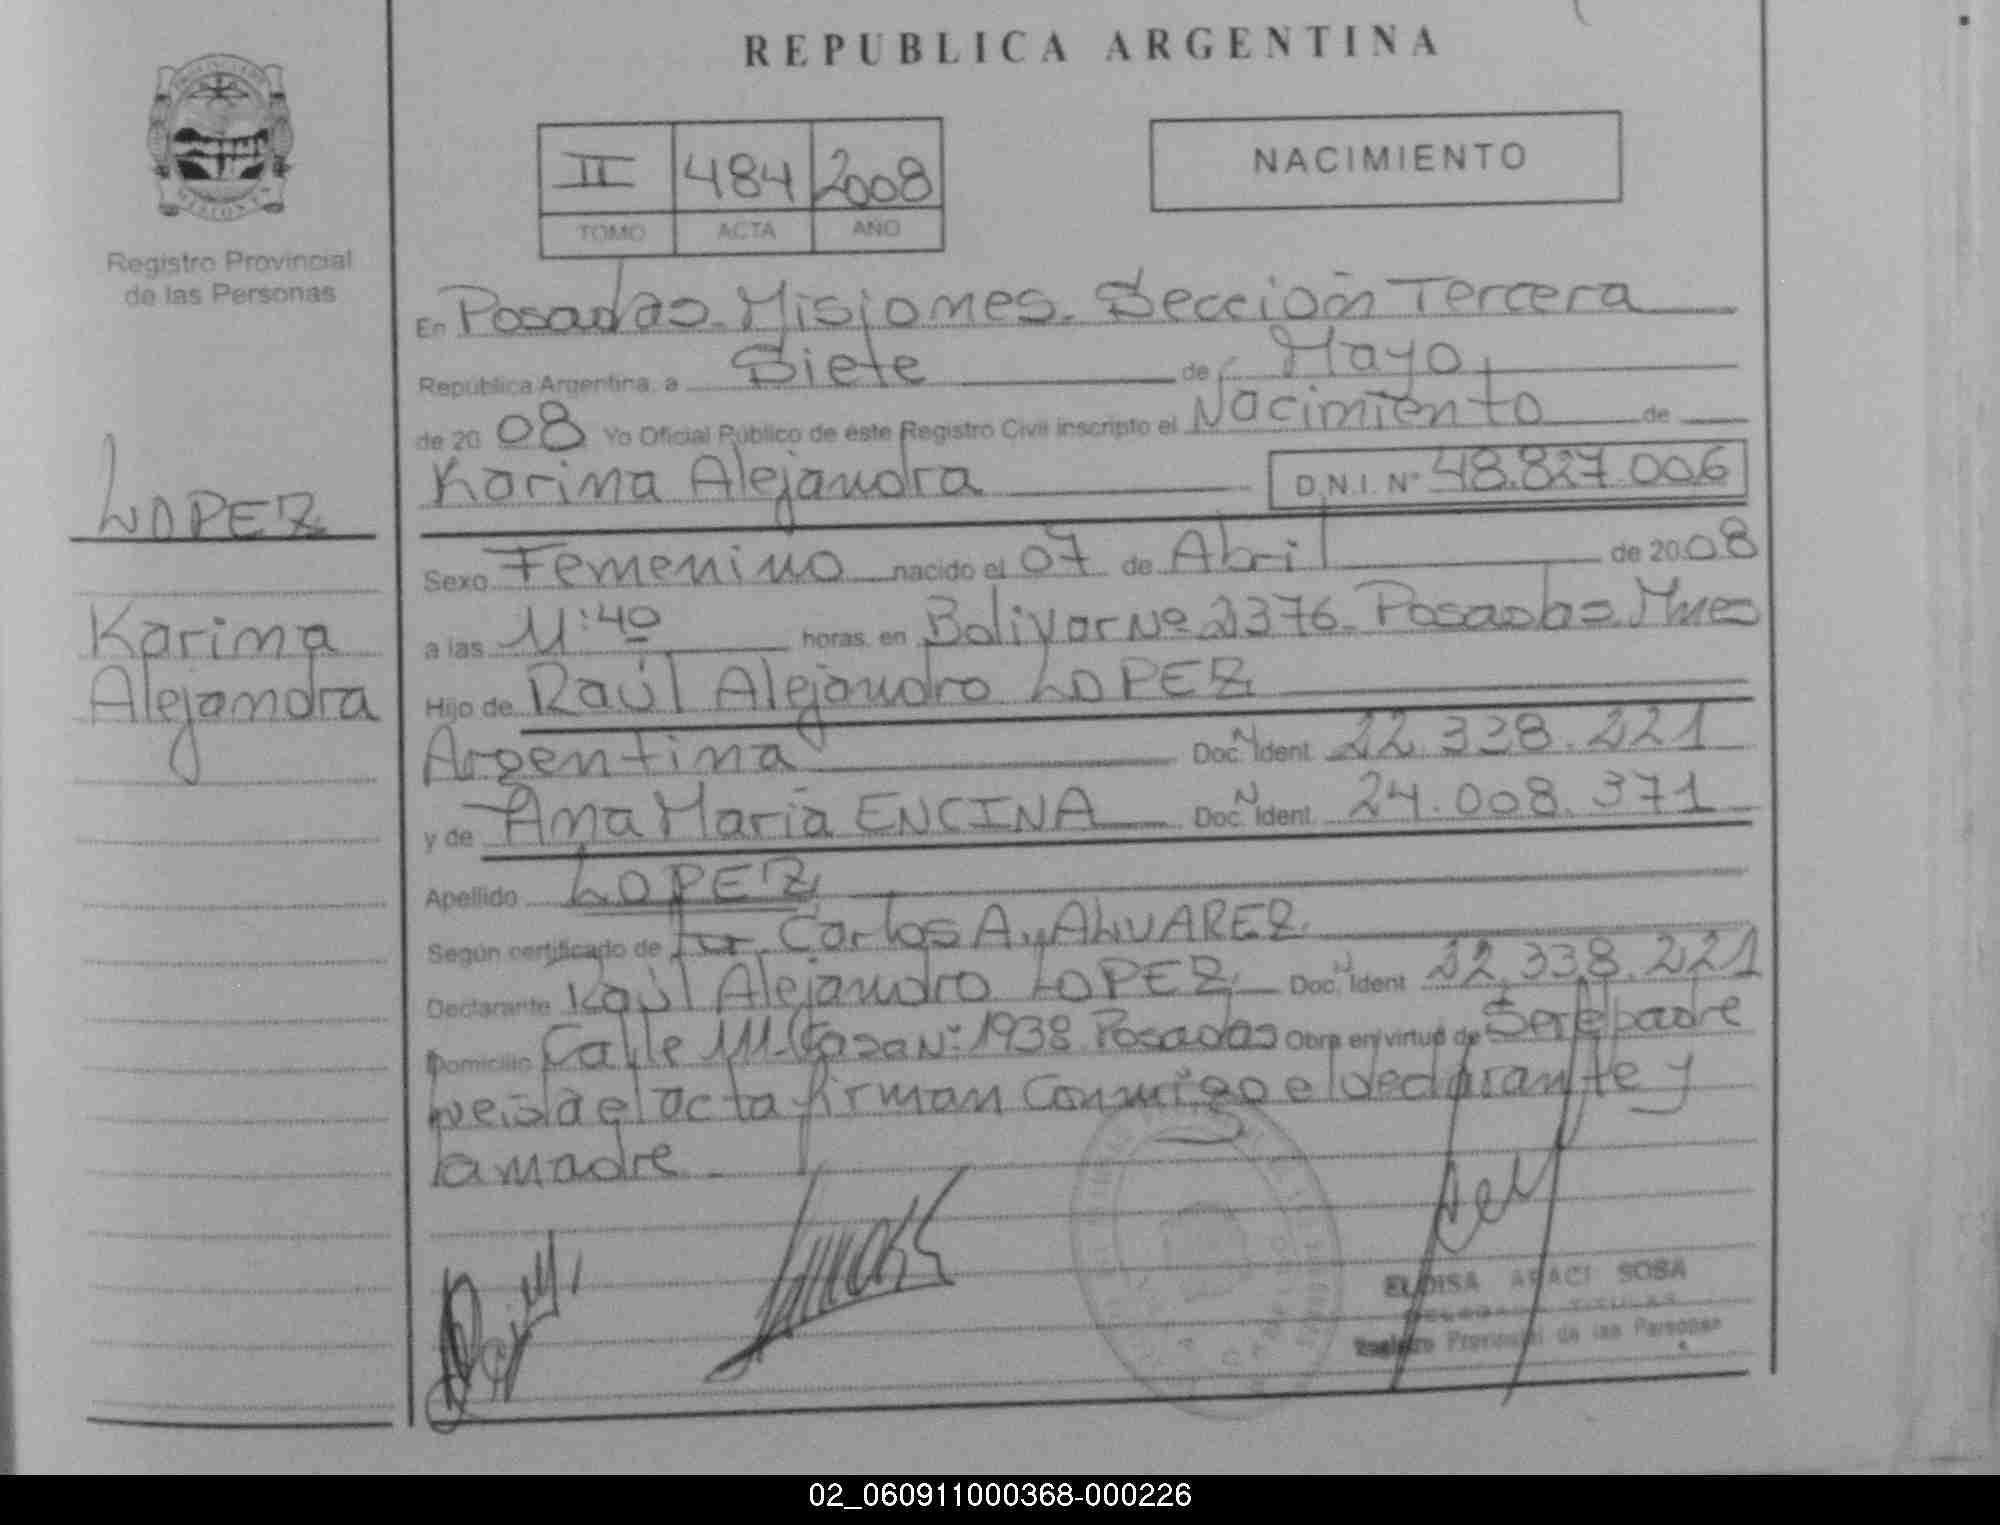 REPUBLICA ARGENTINA
II 484 2008
TOMO ACTA AÑO
NACIMIENTO
Registro Provincial
de las Personas
LOPEZ
Karina
Alejandra
En Posadas. Misiones. Sección Tercera
República Argentina, a Siete de Mayo
de 2008 Yo Oficial Público de éste Registro Civil inscripto el Nacimiento de
Karina Alejandra D.N.I. Nº 48.827.006
Sexo Femenino nacido el 07 de Abril de 2008
a las 11:40 horas, en Bolivar Nº 2376. Posadas. Mnes
Hijo de Raúl Alejandro LOPEZ
Argentina Doc. N Ident. 22.338.221
y de Ana Maria ENCINA Doc. N Ident. 24.008.371
Apellido LOPEZ
Según certificado de Carlos A. ALVAREZ
Declarante Raúl Alejandro LOPEZ Doc. N Ident. 22.338.221
Domicilio Calle 111. Casa Nº 1938 Posadas Obra en virtud de Ser el padre
Leida el acta firman Conmigo el declarante y
la madre.
ELOISA ARACI SOSA
DELEGADA TITULAR
Registro Provincial de las Personas
02_060911000368-000226